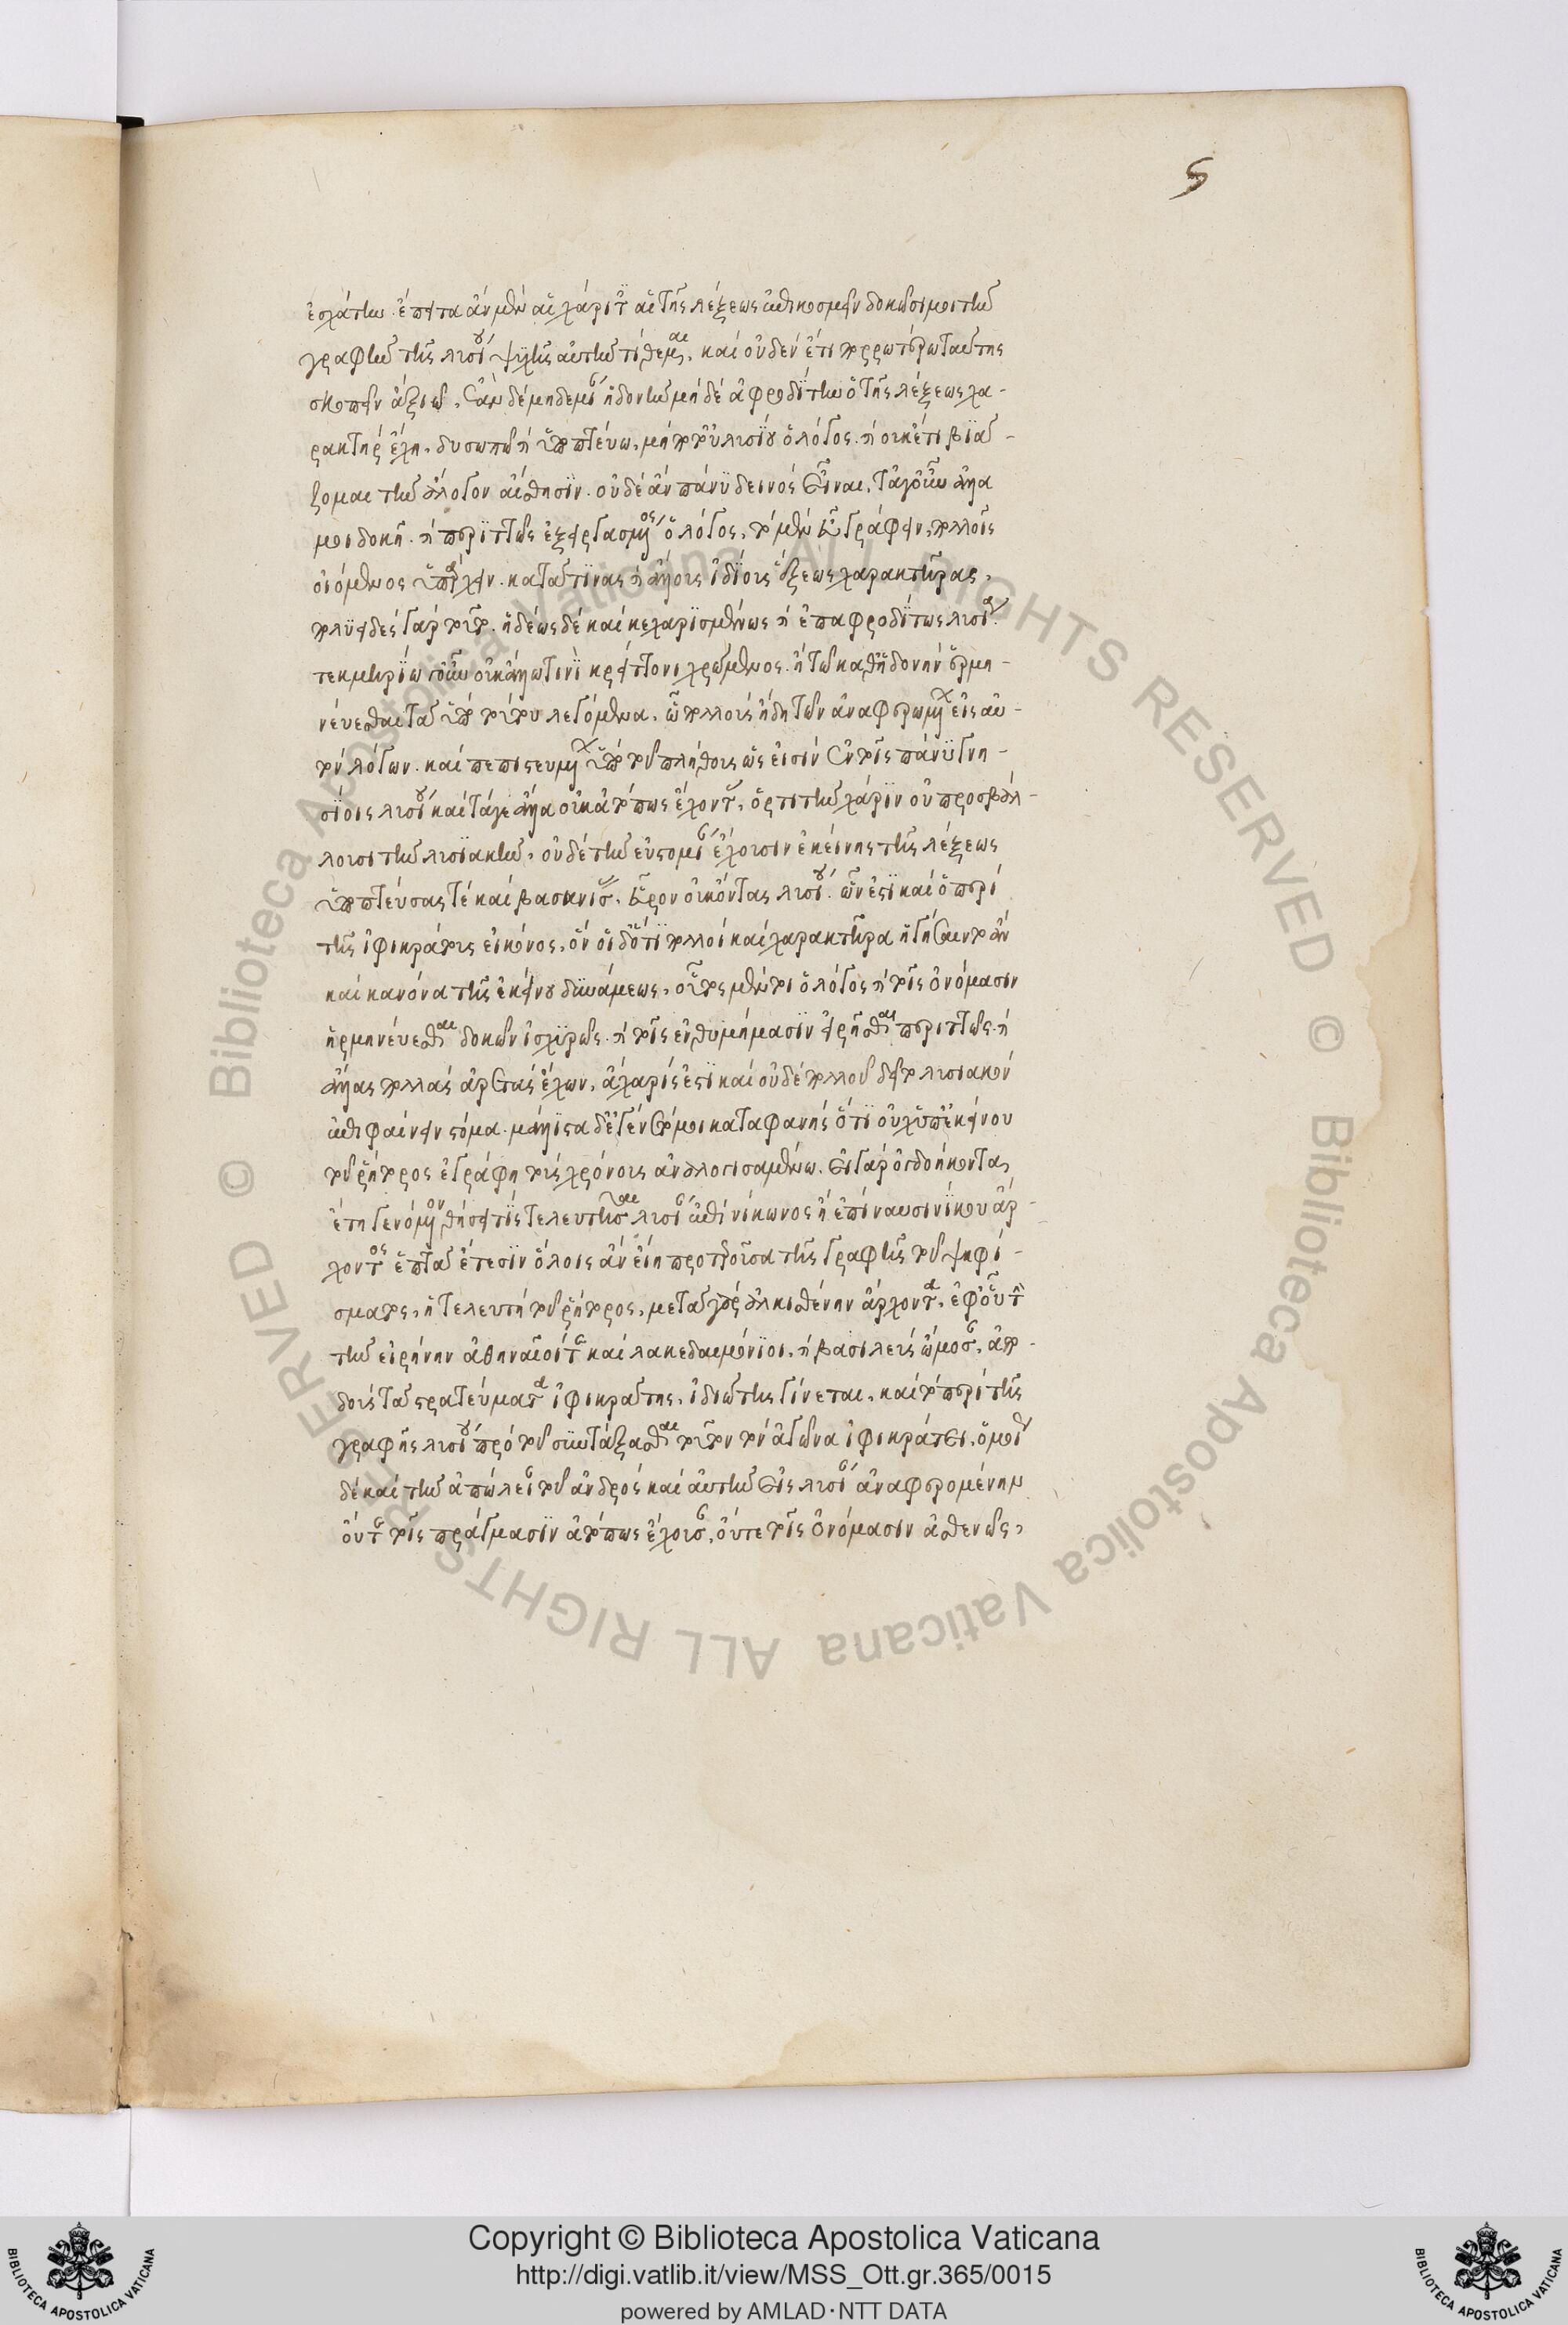 ἐσχάτην. ἔπειτα ἂν μὲν αἱ χάριτες αἱ τῆς λέξεως ἐπικοσμεῖν δοκῶσι μοι τὴν
γραφὴν τῆς λυσίου ψυχῆς αὐτὴν τίθεμαι, καὶ οὐδὲν ἔτι πορρωτέρω ταύτης
σκοπεῖν ἀξιῶ, ἐὰν δὲ μηδεμίαν ἡδονὴν μηδὲ ἀφροδίτην ὁ τῆς λέξεως χα-
ρακτὴρ ἔχῃ, δυσωπῶ καὶ ὑποπτεύω, μή ποτ' οὐ λυσίου ὁ λόγος. καὶ οὐκέτι βιά-
ζομαι τὴν ἄλογον αἴσθησιν. οὐδὲ ἂν πάνυ δεινὸς εἶναι, τὰ γοῦν ἄλλα
μοι δοκῇ. καὶ περιττῶς ἐξειργασμένος ὁ λόγος, τὸ μὲν εὖ γράφειν, πολλοῖς
οἰόμενος ὑπάρχειν. κατά τινας καὶ ἄλλους ἰδίους λέξεως χαρακτῆρας,
πολυειδὲς γὰρ τοῦτο. ἡδέως δὲ καὶ κεχαρισμένως καὶ ἐπαφροδίτως λυσίᾳ.
τεκμηρίῳ γοῦν οὐκ ἄλλῳ τινὶ κρείττονι χρώμενος. ἢ τῷ καθ' ἡδονὴν ἑρμη-
νεύεσθαι τὰ ὑπὸ τούτου λεγόμενα, ὦ πολλοὺς ἤδη τῶν ἀναφερωμένων εἰς αὐ-
τὸν λόγων. καὶ πεπιστευμένων ὑπὸ τοῦ πλήθους ὡς εἰσὶν ἐν τοῖς πάνυ γνη-
σίοις λυσίου καὶ τά γε ἄλλα οὐκ ἀτόπως ἔχοντας, ὅτι τὴν χάριν οὐ προσβάλ-
λουσι τὴν λυσιακὴν, οὐδὲ τὴν εὐστομίαν ἔχουσιν ἐκείνης τῆς λέξεως
ὑποπτεύσας τὲ καὶ βασανίσας, εὗρον οὐκ ὄντας λυσίου. ὧν ἐστὶ καὶ ὁ περὶ
τῆς ἰφικράτους εἰκόνος, ὃν οἶδ' ὅτι πολλοὶ καὶ χαρακτῆρα ἡγήσαιντο ἂν
καὶ κανόνα τῆς ἐκείνου δυνάμεως, οὗτος μέν τοι ὁ λόγος καὶ τοῖς ὀνόμασιν
ἡρμηνεύεσθαι δοκῶν ἰσχυρῶς. καὶ τοῖς ἐνθυμήμασιν εἰρῆσθαι περιττῶς. καὶ
ἄλλας πολλὰς ἀρετὰς ἔχων, ἄχαρίς ἐστι καὶ οὐδὲ πολλοῦ δεῖ τὸ λυσιακὸν
ἐπιφαίνειν στόμα. μάλιστα δ' ἐγένετό μοι καταφανὴς ὅτι οὐχ ὑπ' ἐκείνου
τοῦ ῥήτορος ἐγράφη τοὺς χρόνους ἀναλογισαμένῳ. εἰ γὰρ ὀγδοήκοντα
ἔτη γενόμενον θήσει τις τελευτῆσαι λυσίαν ἐπὶ νίκωνος ἢ ἐπὶ ναυσινίκου ἄρ-
χοντος ἑπτὰ ἔτεσιν ὅλοις ἂν εἴη προτεροῦσα τῆς γραφῆς τοῦ ψηφί-
σματος, ἡ τελευτὴ τοῦ ῥήτορος, μετὰ γὰρ ἀλκισθένην ἄρχοντα, ἐφ' οὗ τ
τὴν εἰρήνην ἀθηναῖοί τε καὶ λακεδαιμόνιοι, καὶ βασιλεὺς ὤμοσαν, ἀπο-
δοὺς τὰ στρατεύματα ἰφικράτης, ἰδιώτης γίνεται, καὶ τὸ περὶ τῆς
γραφῆς λυσίου πρὸ τοῦ συντάξασθαι τοῦτον τὸν ἀγῶνα ἰφικράτει, ὁμοῦ
δὲ καὶ τὴν ἀπώλειαν τοῦ ἀνδρὸς καὶ αὐτὴν εἰς λυσίαν ἀναφερομένην
οὔτε τοῖς πράγμασιν ἀτόπως ἔχουσαν, οὔτε τοῖς ὀνόμασιν ἀσθενῶς,
Copyright © Biblioteca Apostolica Vaticana
http://digi.vatlib.it/view/MSS_Ott.gr.365/0015
powered by AMLAD·NTT DATA